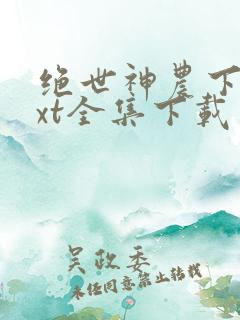 绝世神农下
xt全集下载
吴政委
未经同意禁止转载